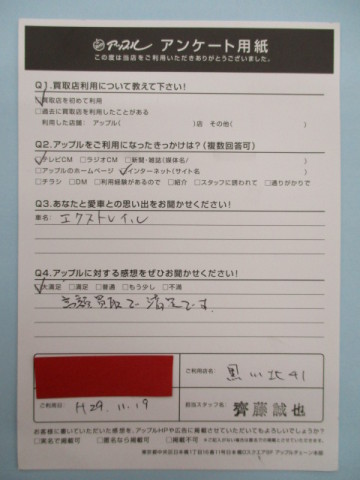 アップル アンケート用紙
この度は当店をご利用いただきありがとうございました。
Q1.買取店利用について教えて下さい!
□買取店を初めて利用
□過去に買取店を利用したことがある
利用した店舗: アップル( )店 その他( )
Q2.アップルをご利用になったきっかけは?(複数回答可)
□テレビCM □ラジオCM □新聞・雑誌(媒体名/ )
□アップルのホームページ □インターネット(サイト名 )
□チラシ □DM □利用経験があるので □紹介 □スタッフに誘われて □通りがかりで
Q3.あなたと愛車との思い出をお聞かせください!
車名: エクストレイル
Q4.アップルに対する感想をぜひお聞かせください!
□大満足 □満足 □普通 □もう少し □不満
高額買取で満足です。
ご利用店名: 黒川北41
ご利用日: H29.11.19
担当スタッフ名: 齊藤誠也
お客様に書いていただいた感想を、アップルHPや広告に掲載させていただいてもよろしいでしょうか?
□実名で掲載可 □匿名なら掲載可 □掲載不可 ※ご記入がない場合は匿名での掲載とさせていただきます。
東京都中央区日本橋1丁目16番11号日本橋Dスクエア5F アップルチェーン本部